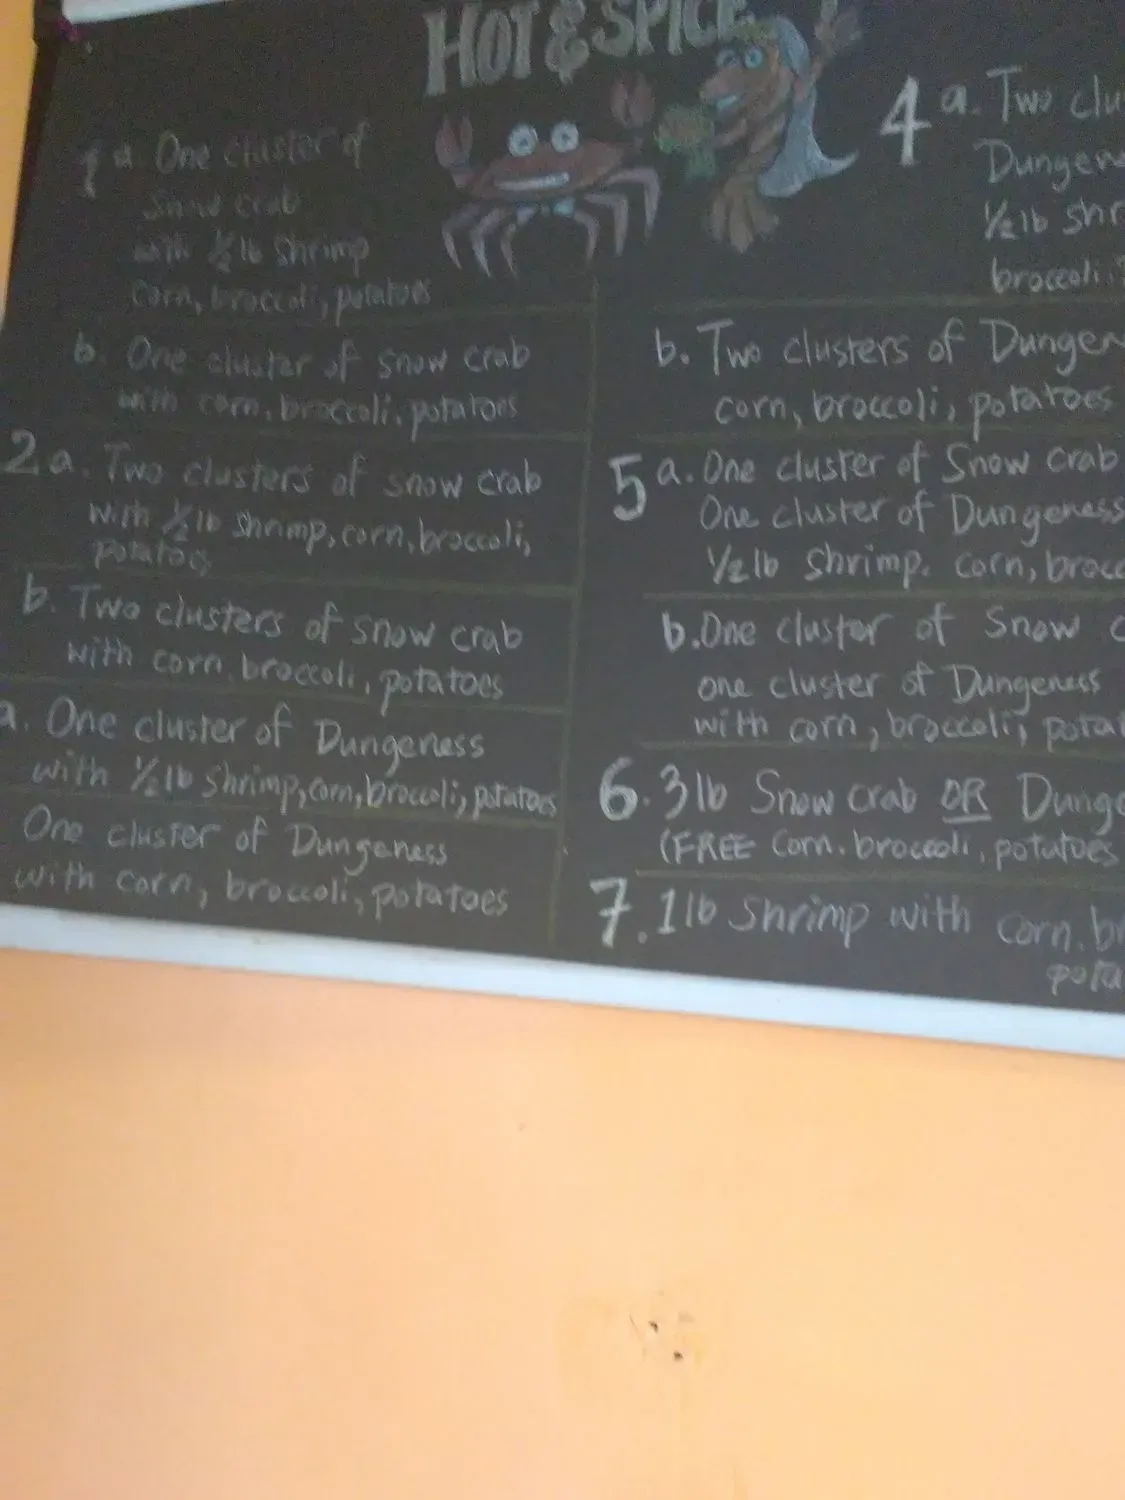 HOT & SPICE
1 a. One cluster of
Snow crab
with 1/2 lb Shrimp
corn, broccoli, potatoes
b. One cluster of snow crab
with corn, broccoli, potatoes
2 a. Two clusters of snow crab
with 1/2 lb shrimp, corn, broccoli,
potatoes
b. Two clusters of snow crab
with corn, broccoli, potatoes
a. One cluster of Dungeness
with 1/2 lb Shrimp, corn, broccoli, potatoes
One cluster of Dungeness
with corn, broccoli, potatoes
4 a. Two clu
Dungen
1/2 lb shr
broccoli,
b. Two clusters of Dungen
corn, broccoli, potatoes
5 a. One cluster of Snow crab
One cluster of Dungeness
1/2 lb shrimp. corn, brocc
b. One cluster of Snow c
one cluster of Dungeness
with corn, broccoli, potat
6. 3 lb Snow crab OR Dunge
(FREE Corn. broccoli, potatoes
7. 1 lb Shrimp with corn. br
pota